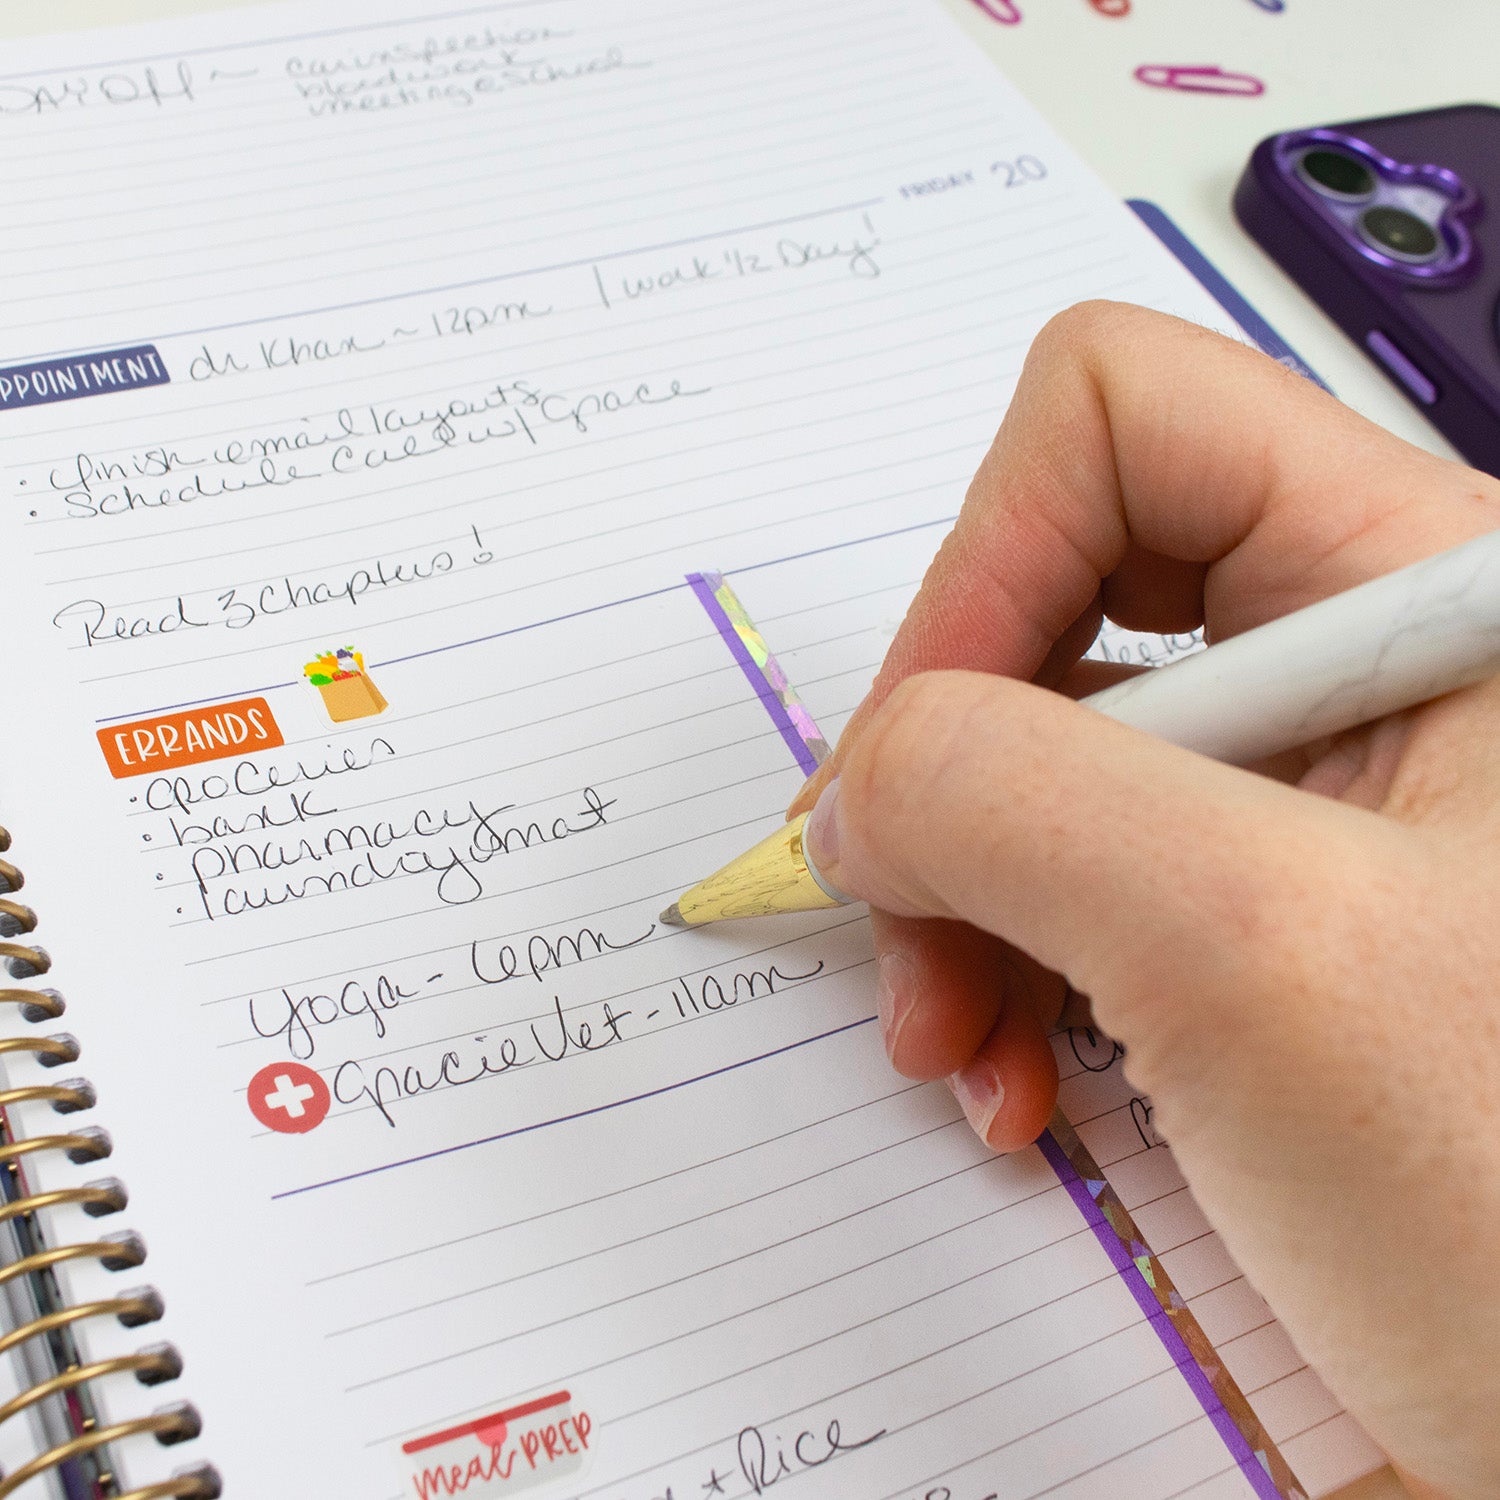 DAY OFF ~ car inspection
bloodwork
meeting @ school
FRIDAY 20
PPOINTMENT dr Khan ~ 12pm | work 1/2 Day!
· finish email layouts
· Schedule Call w/ Grace
Read 3 Chapters!
ERRANDS
· groceries
· bank
· pharmacy
· laundry mat
Yoga - 6pm
Gracie Vet - 11am
meal PREP
+ Rice